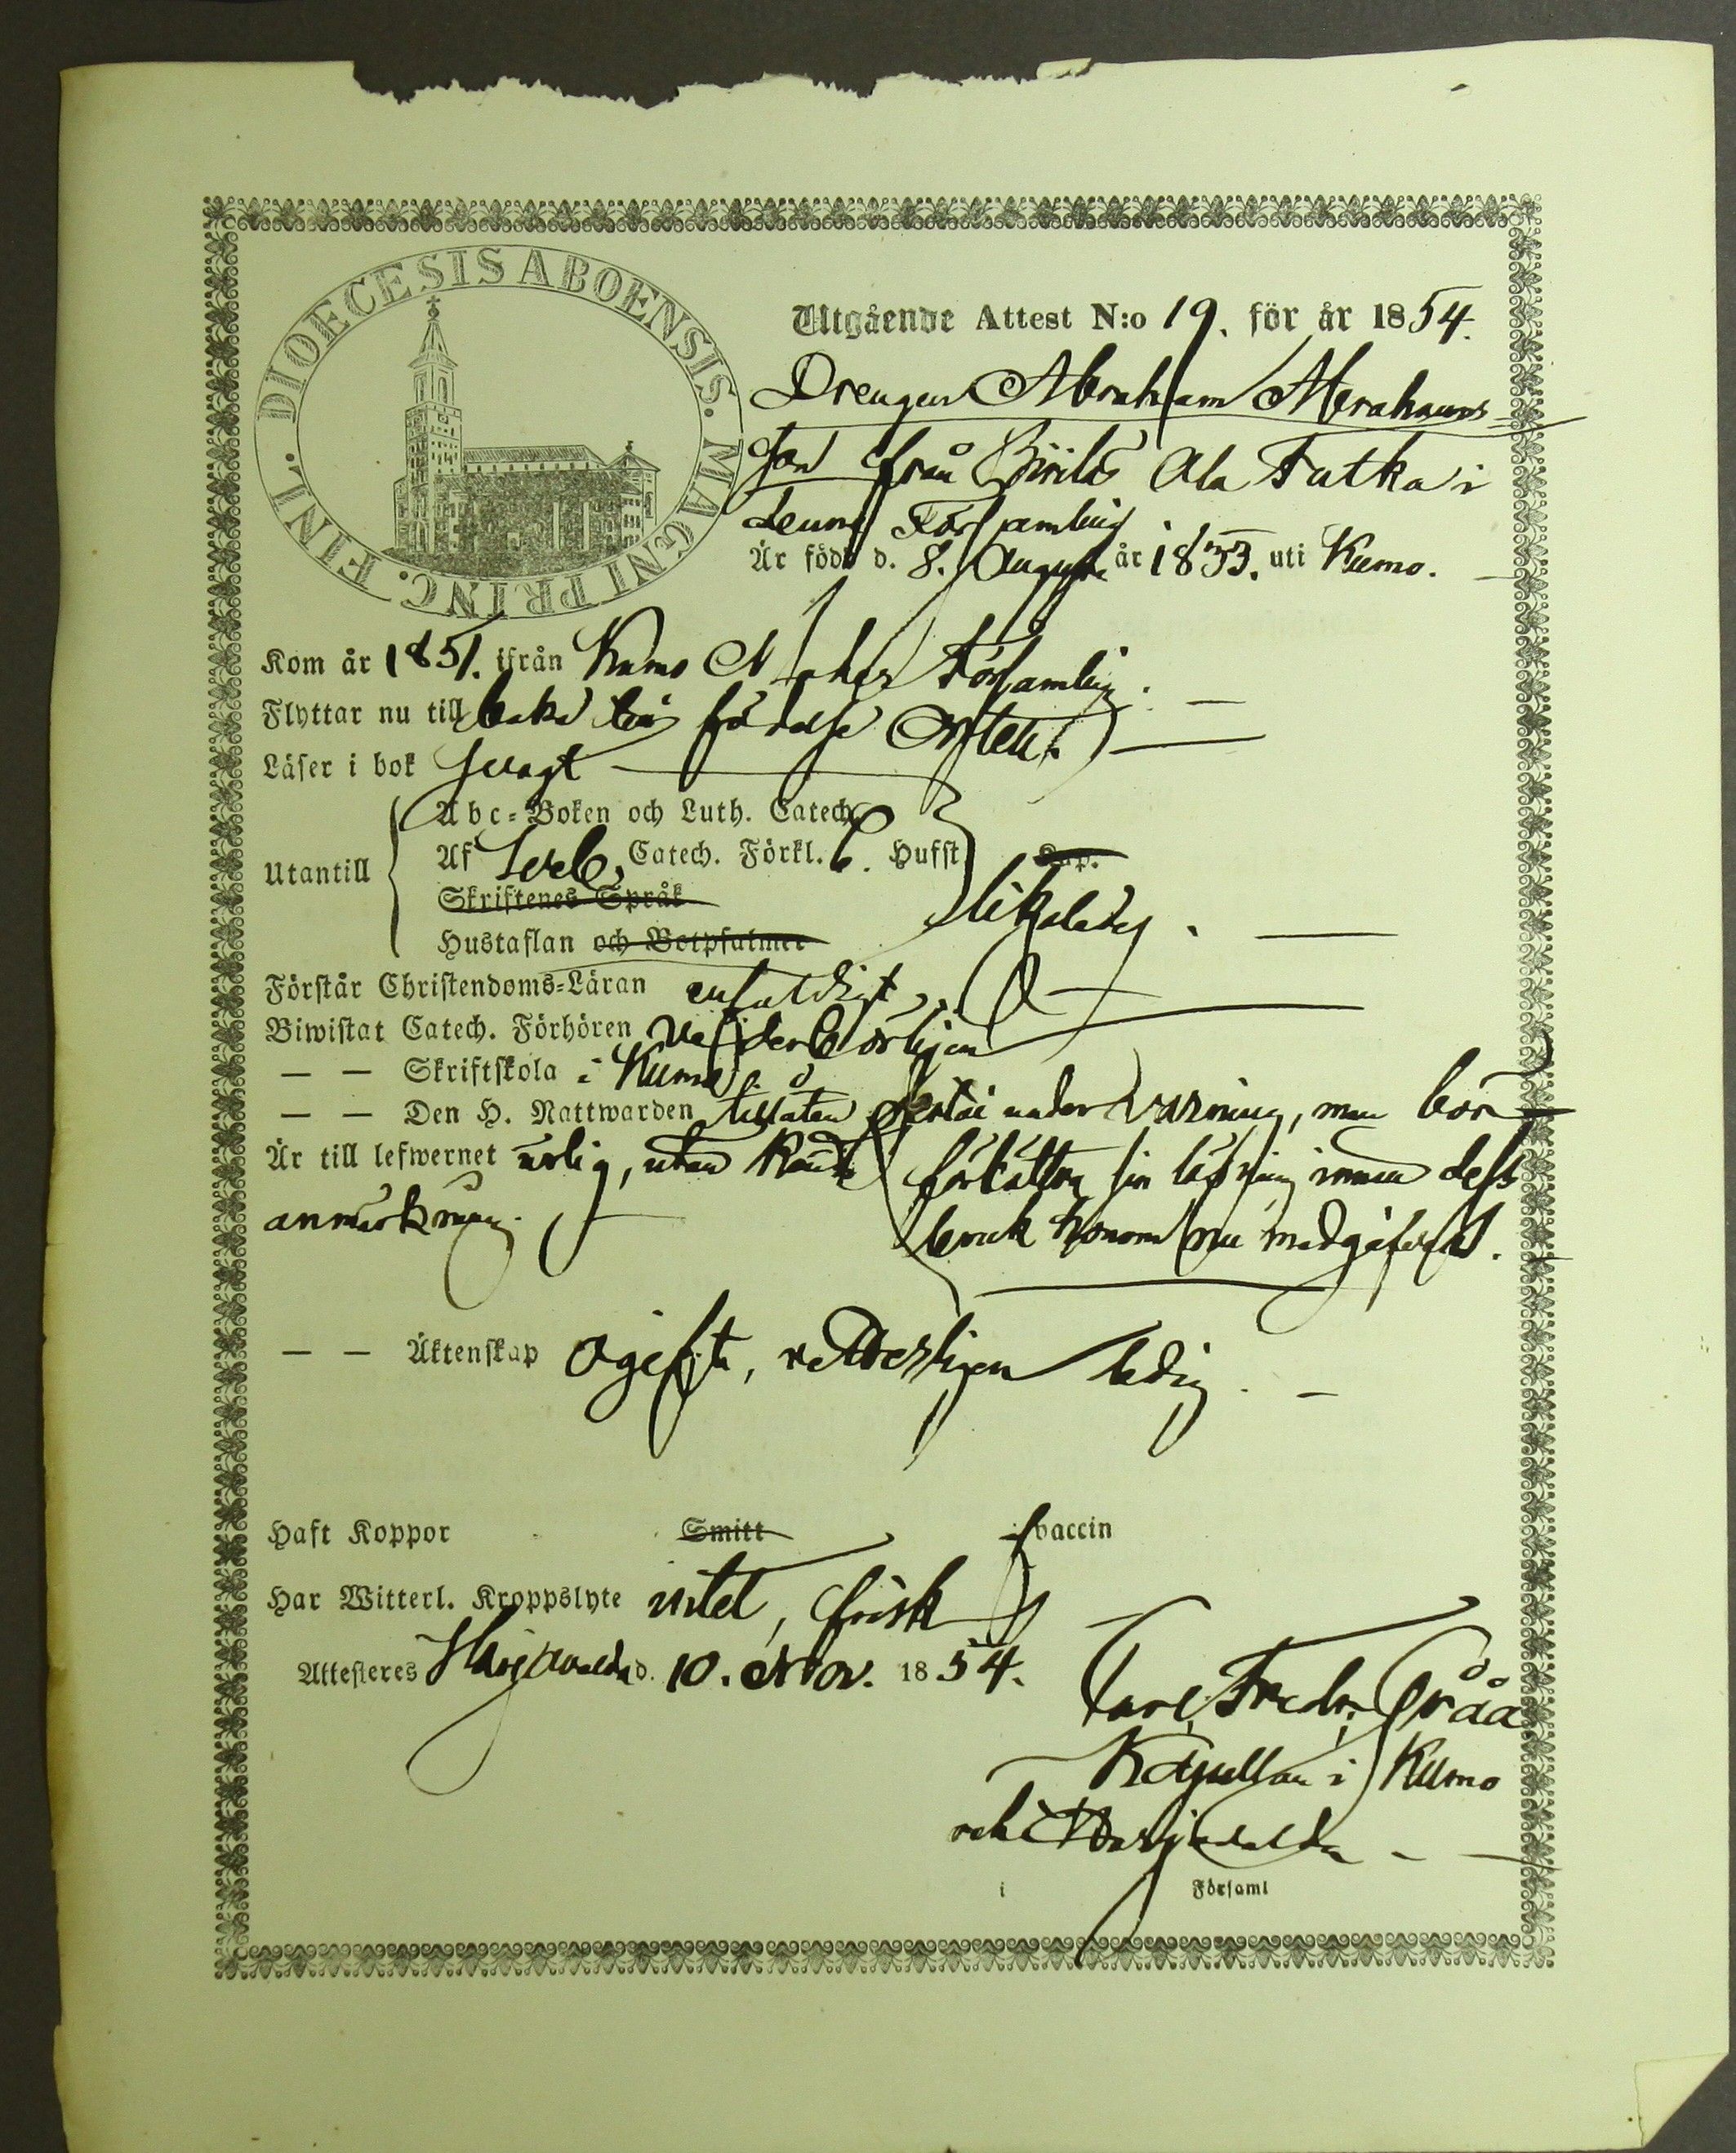 DIOECESIS ABOENSIS. MAGNI PRINC. FINL.
Utgående Attest N:o 19. för år 1854.
Drengen Abraham Abrahams
son från Ala Tutka i
denna Församling
Är född d. 8. Augusti år 1833. uti Kumo.
Kom år 1851. ifrån Kumo Moder Församling.
Flyttar nu till baka till födelse Orten.
Läser i bok svagt
Abc-Boken och Luth. Catech.
Utantill
Af Catech. Förkl. Hufst Cap.
Skriftenes Språk
likaledes.
Hustaflan och Botpsalmer
Förstår Christendoms-Läran enfaldigt.
Biwistat Catech. Förhören vederbörligen
— — Skriftskola i Kumo
— — Den H. Nattwarden tillåten under varning, men bör
Är till lefwernet ärlig, utan känd
förbättra sin läsning innan dess
anmärkning.
bruk honom nu medgifves.
— — Äktenskap Ogift, vederligen ledig.
Haft Koppor Smitt vaccin
Har Witterl. Kroppslyte intet, frisk
Attesteres Harjavalda d. 10. Nov. 1854.
Carl Fredr. Gråå
Kapellan i Kumo
och Harjavalda
i Församl